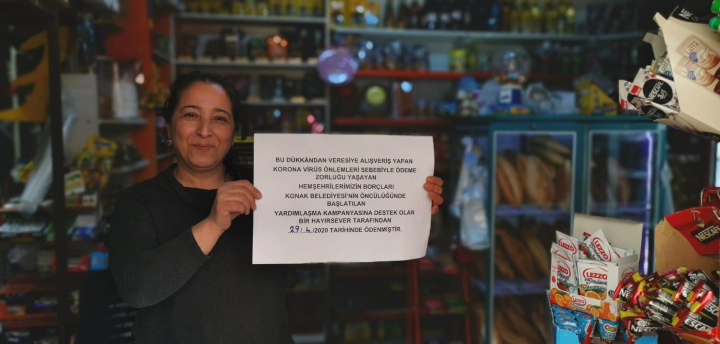 BU DÜKKÂNDAN VERESİYE ALIŞVERİŞ YAPAN
KORONA VİRÜS ÖNLEMLERİ SEBEBİYLE ÖDEME
ZORLUĞU YAŞAYAN
HEMŞEHRİLERİMİZİN BORÇLARI
KONAK BELEDİYESİ'NİN ÖNCÜLÜĞÜNDE
BAŞLATILAN
YARDIMLAŞMA KAMPANYASINA DESTEK OLAN
BİR HAYIRSEVER TARAFINDAN
29/.4./2020 TARİHİNDE ÖDENMİŞTİR.
LEZZO
LEZZO